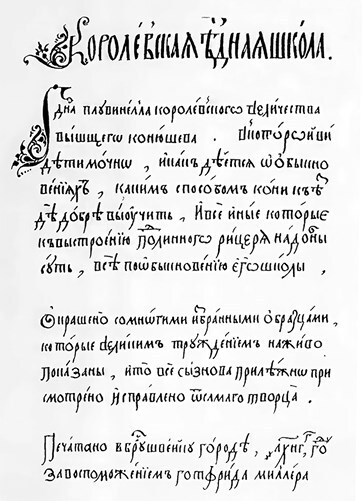 Королевская ѣзднаяшкола.
Iдна плувинелла королевского величества
вышщегѡ конюшева. Вкоторѡй ви
дѣти мочнѡ, и какъ дѣется ѡ обыкно
венияхъ, какимъ способомъ кони къѣз
дѣ добрѣ выѹчить, и все иные которые
къ выстроению подлинного рицеря надобны
суть, всѣ по обыкновению егѡ школы,
Ѹкрашено со многими избранными образцами,
которые великимъ труждениемъ наживо
показаны, и то все сызнова прилѣжно при
смотрено и исправлено ѿ самаго творца.
Печатано въ брушвенгу городѣ, ҂ахкг, году
за воспоможениемъ готфрида миллера